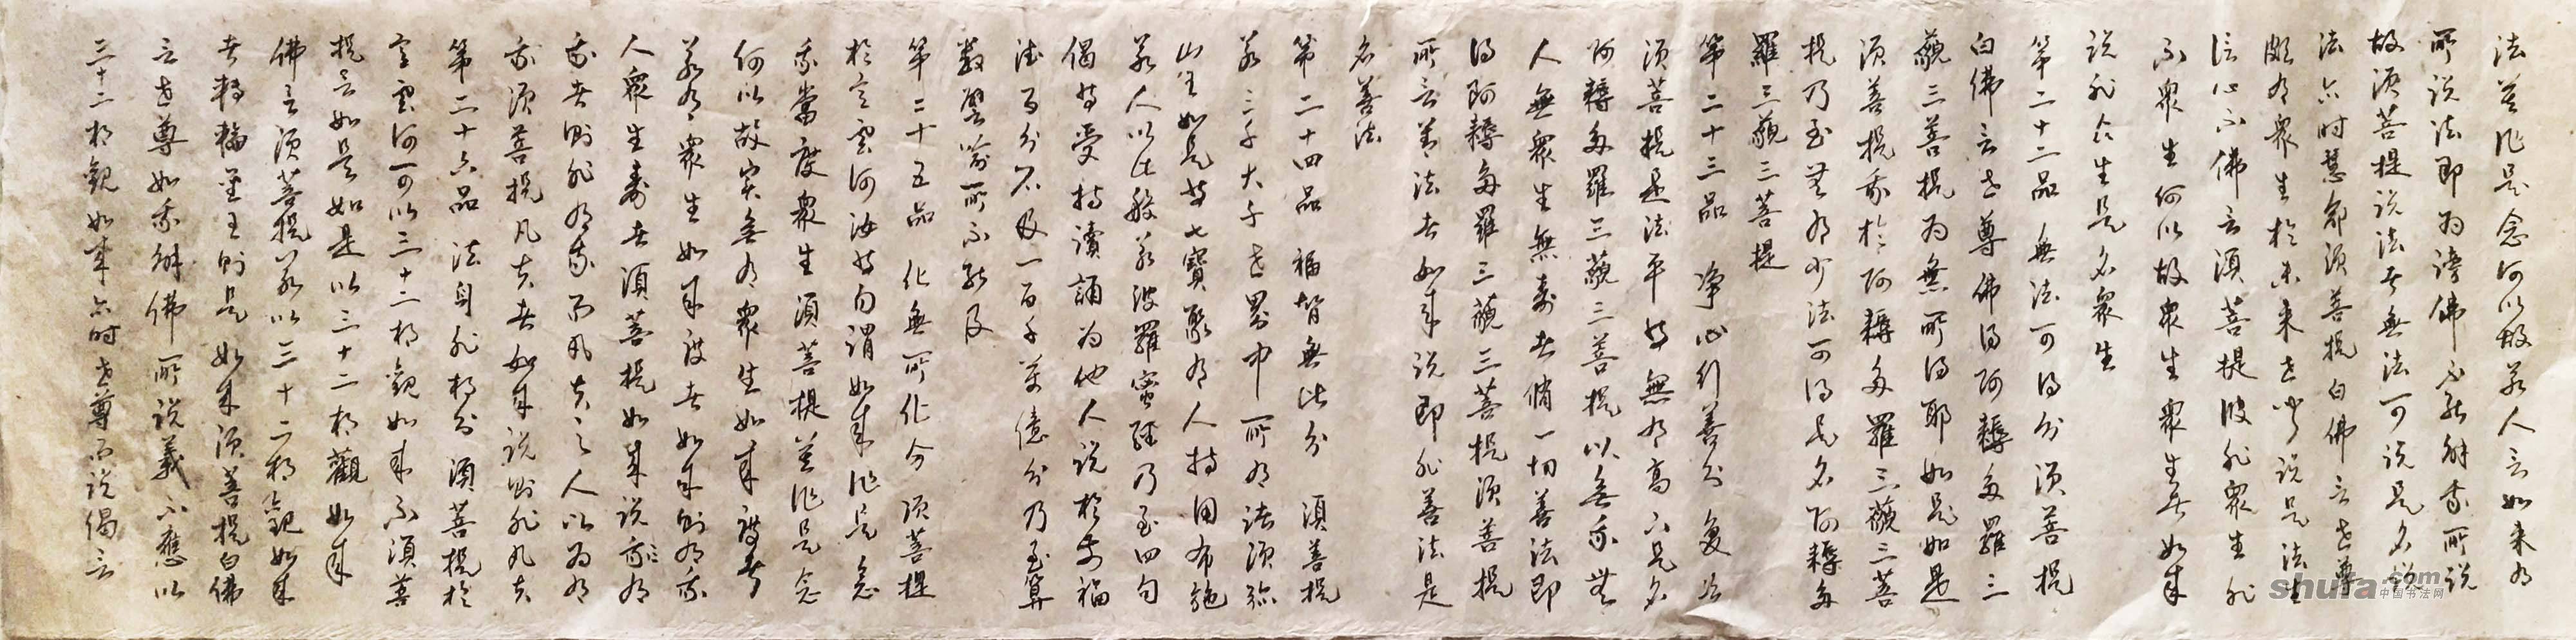 法莫作是念何以故若人言如来有
所说法即为谤佛不能解我所说
故须菩提说法者無法可说是名说
法尒时慧命须菩提白佛言世尊
颇有众生於未来世闻说是法生
信心不佛言须菩提彼非眾生非
不眾生何以故眾生眾生者如来
说非众生是名眾生
第二十二品 無法可得分 须菩提
白佛言世尊佛得阿耨多羅三
藐三菩提为無所得耶如是如是
须菩提我於阿耨多羅三藐三菩
提乃至無有少法可得是名阿耨多
羅三藐三菩提
第二十三品 净心行善分 复次
须菩提是法平等無有高下是名
阿耨多羅三藐三菩提以無我無
人無眾生無寿者脩一切善法即
得阿耨多羅三藐三菩提须菩提
所言善法者如来说即非善法是
名善法
第二十四品 福智無比分 须菩提
若三千大千世界中所有诸须弥
山王如是等七寶聚有人持用布施
若人以此般若波羅蜜經乃至四句
偈等受持讀誦为他人说於前福
德百分不及一百千萬億分乃至算
数譬喻所不能及
第二十五品 化無所化分 须菩提
於意雲何汝等勿謂如来作是念
我當度眾生须菩提莫作是念
何以故实無有眾生如来度者
若有眾生如来度者如来则有我
人眾生寿者须菩提如来说我有
我者则非有我而凡夫之人以为有
我须菩提凡夫者如来说则非凡夫
第二十六品 法身非相分 须菩提於
意雲何可以三十二相觀如来不须菩
提言如是如是以三十二相觀如来
佛言须菩提若以三十二相觀如来
者轉輪聖王则是如来须菩提白佛
言世尊如我解佛所说義不應以
三十二相觀如来尒时世尊而说偈言
shufa.com
中国书法网